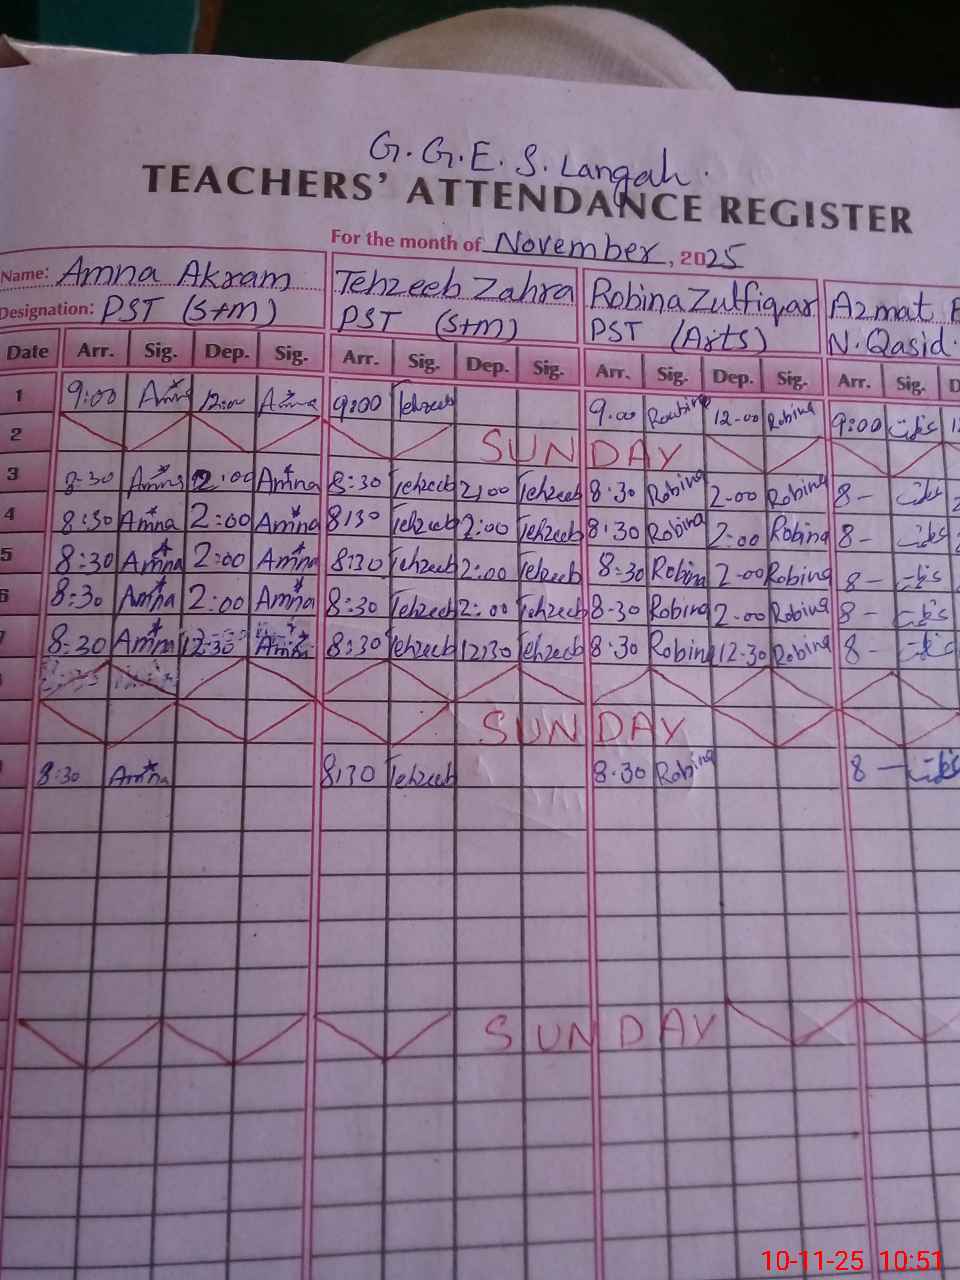 G. G. E. S. Langah.
TEACHERS' ATTENDANCE REGISTER
For the month of November, 2025
Name: Amna Akram Tehzeeb Zahra Robina Zulfiqar Azmat
Designation: PST (S+M) PST (S+M) PST (Arts) N. Qasid.
Date Arr. Sig. Dep. Sig. Arr. Sig. Dep. Sig. Arr. Sig. Dep. Sig. Arr. Sig. D
1 9:00 Amna 12:00 Amna 9:00 Tehzeeb 9.00 Robina 12-00 Robina 9:00
2 SUNDAY
3 8:30 Amna 2:00 Amna 8:30 Tehzeeb 2:00 Tehzeeb 8.30 Robina 2-00 Robina 8-
4 8:30 Amna 2:00 Amna 8:30 Tehzeeb 2:00 Tehzeeb 8.30 Robina 2:00 Robina 8-
5 8:30 Amna 2:00 Amna 8:30 Tehzeeb 2:00 Tehzeeb 8-30 Robina 2-00 Robina 8-
6 8:30 Amna 2:00 Amna 8:30 Tehzeeb 2:00 Tehzeeb 8-30 Robina 2-00 Robina 8-
7 8:30 Amna 12:30 Amna 8:30 Tehzeeb 12:30 Tehzeeb 8.30 Robina 12-30 Robina 8-
SUNDAY
8:30 Amna 8:30 Tehzeeb 8.30 Robina 8-
SUNDAY
10-11-25 10:51